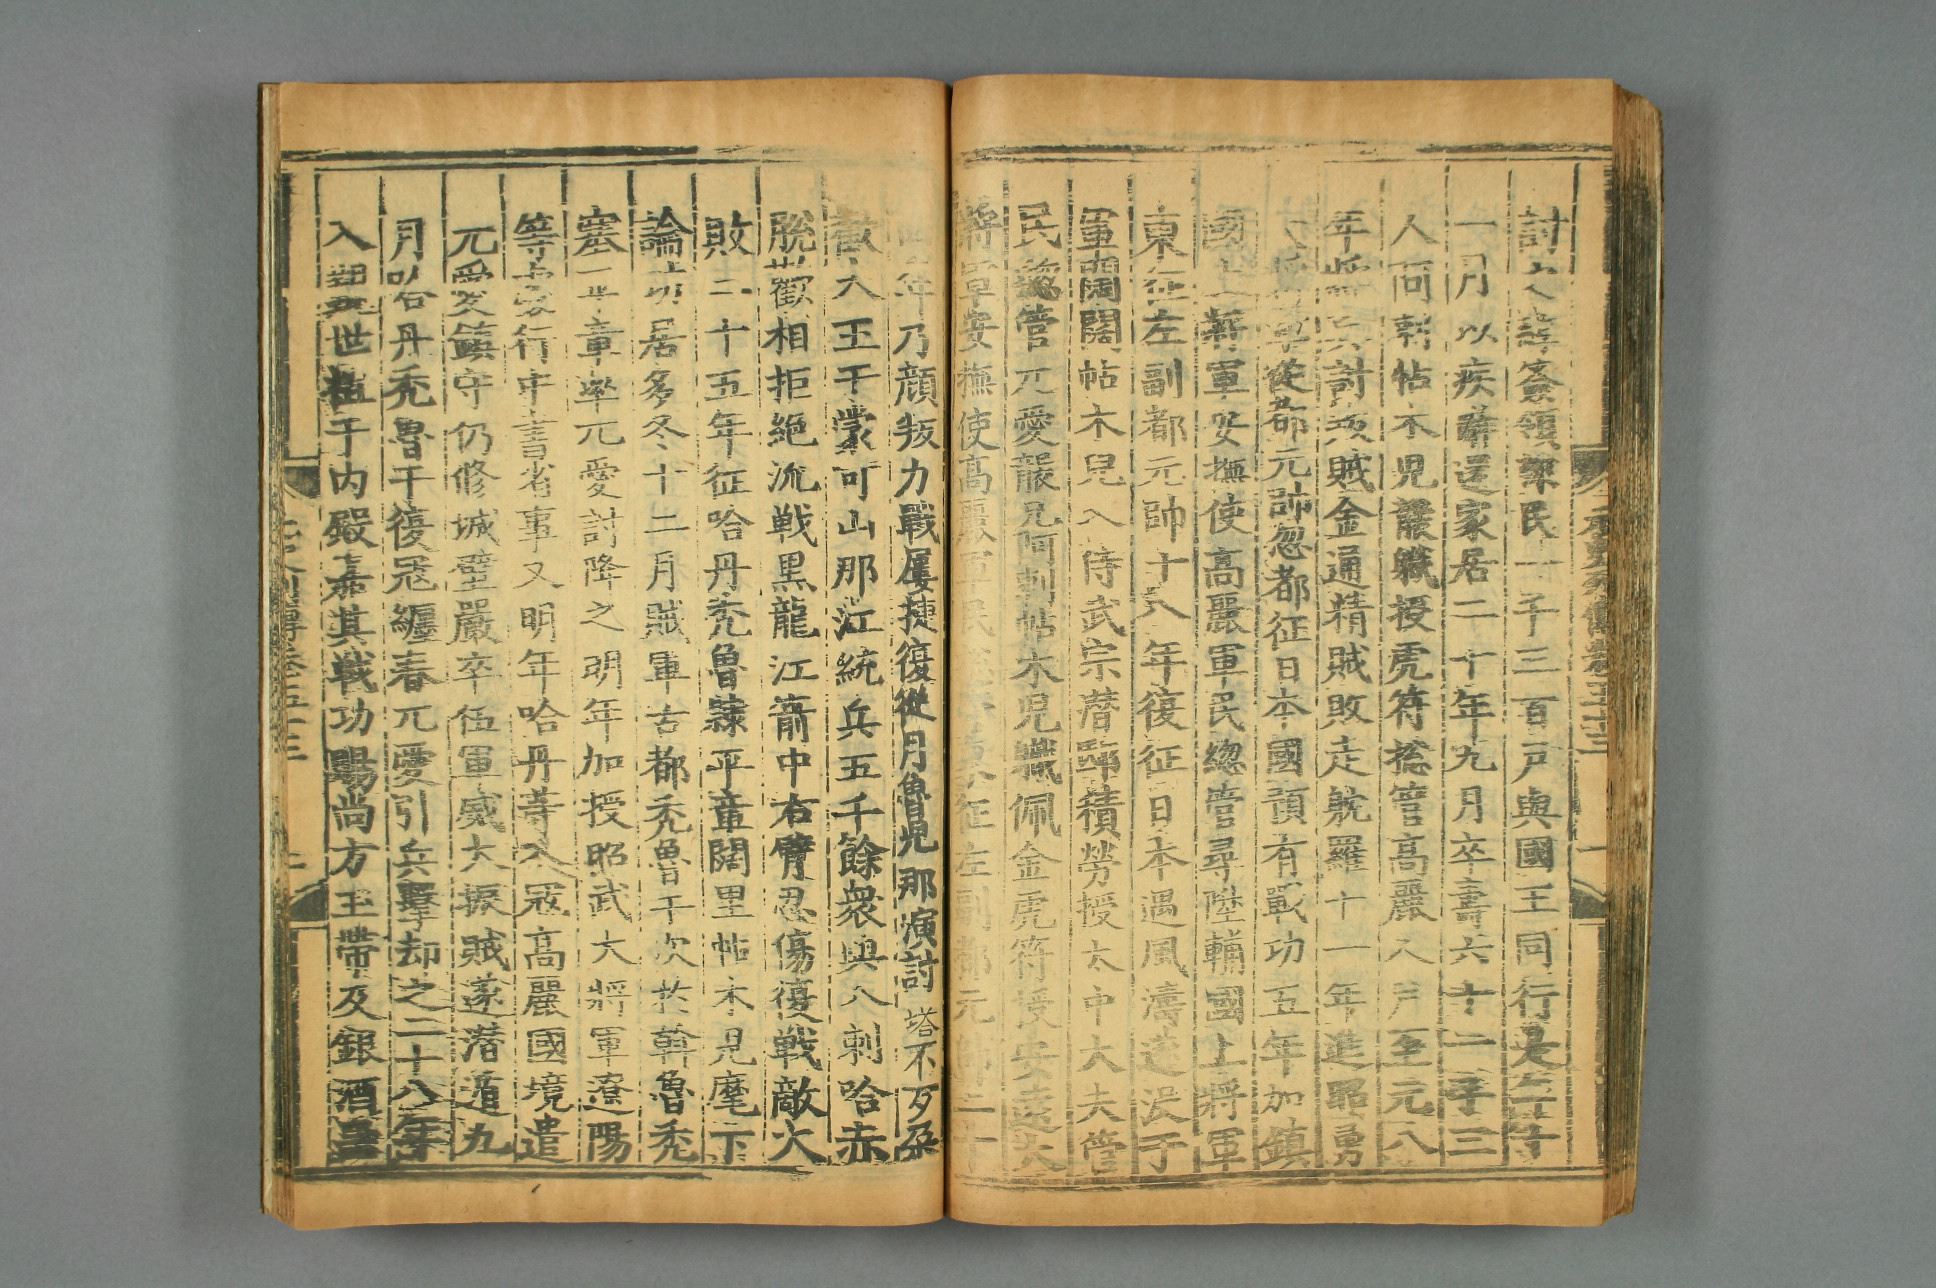 一月以疾辭還家居二十年九月卒壽六十二子三
人阿剌帖木兒襲職授虎符摠管高麗人戶至元八
年將兵討叛賊金通精賊敗走耽羅十一年進昭勇
大將軍從都元帥忽都征日本國預有戰功五年加鎮
國上將軍安撫使高麗軍民總管尋陞輔國上將軍
東征左副都元帥十八年復征日本遇風濤遂沒于
軍闊闊帖木兒入侍武宗潛邸積勞授太中大夫管
民總管兀愛襲兄阿剌帖木兒職佩金虎符授安遠大
將軍安撫使高麗軍民總管東征左副都元帥二十
四年乃顏叛力戰屢捷復從月魯兒那演討塔不歹朶
歡大王于蒙可山那江統兵五千餘衆與八剌哈赤
脫歡相拒絕流戰黑龍江箭中右臂忍傷復戰敵大
敗二十五年征哈丹禿魯隸平章闊里帖木兒麾下
論功居多冬十二月賊軍古都禿魯干次於斡魯禿
塞平章率兀愛討降之明年加授昭武大將軍遼陽
等處行中書省事又明年哈丹等入寇高麗國境遣
兀愛鎮守仍修城壁嚴卒伍軍威大振賊遂潛遁九
月哈丹禿魯干復寇纏春兀愛引兵擊却之二十八年
入朝世祖于內殿嘉其戰功賜尚方玉帶及銀酒